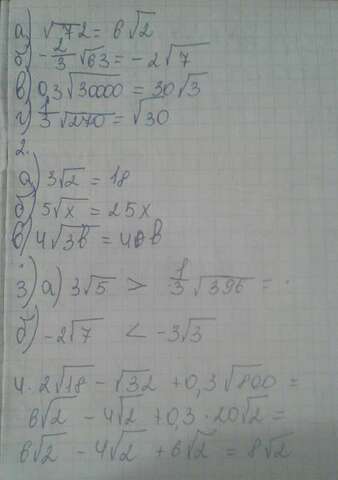 а) √72 = 6√2
б) -2/3 √63 = -2√7
в) 0,3√30000 = 30√3
г) 1/3 √270 = √30
2.
а) 3√2 = 18
б) 5√x = 25x
в) 4√3b =
3) а) 3√5 > 1/3 √396 =
б) -2√7 < -3√3
4. 2√18 - √32 + 0,3√800 =
6√2 - 4√2 + 0,3 · 20√2 =
6√2 - 4√2 + 6√2 = 8√2